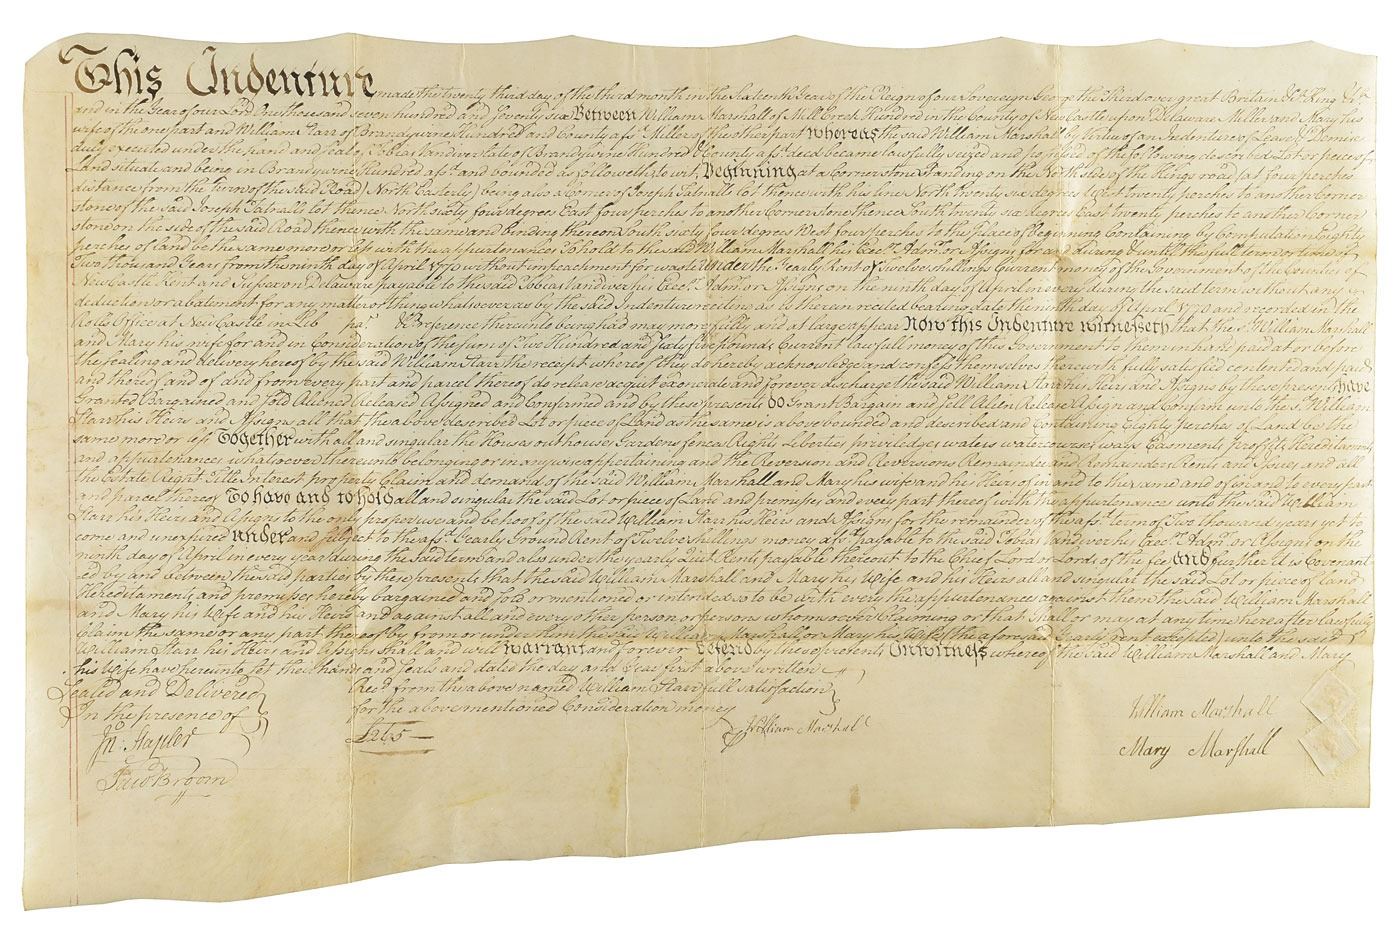 This Indenture made the twenty third day of the third month in the sixteenth Year of the Reign of our Sovereign George the Third over great Britain &c.a King &c.a
and in the Year of our Lord One thousand seven hundred and seventy six Between William Marshall of Mill Creek Hundred in the County of New Castle upon Delaware Miller and Mary his
wife of the one part and William Starr of Brandywine Hundred and County afs.d Miller of the other part whereas the said William Marshall by Virtue of an Indenture of Lease & Demise
duly executed under the hand and seal of Tobias Vandiver late of Brandywine Hundred & County afs.d dec.d became lawfully seized and possessed of the following described Lot or piece of
Land situate and being in Brandywine Hundred afs.d and bounded as followeth to wit, Beginning at a Corner stone standing on the North side of the Kings road (at four perches
distance from the term of the said Road North Easterly) being also a corner of Joseph Tatnalls lot thence with his line North twenty six degrees West twenty perches to another Corner
stone of the said Joseph Tatnalls lot thence North sixty four degrees East four perches to another Corner stone thence South twenty six degrees East twenty perches to another Corner
stone on the side of the said Road thence with the same and binding thereon South sixty four degrees West four perches to the place of Beginning Containing by Computation Eighty
perches of land be the same more or less with the appurtenances To hold to the said William Marshall his Exec.rs Adm.rs or Assigns for and during & until the full term or time of
Two thousand Years from the ninth day of April 1770 without impeachment for waste under the Yearly Rent of Twelve shillings Current money of the Government of the Counties of
New Castle Kent and Sussex on Delaware payable to the said Tobias Vandiver his Exec.rs Adm.rs or Assigns on the ninth day of April in every Year during the said term without any
deduction or abatement for any matter or thing whatsoever as by the said Indenture reciting as is therein recited bearing date the ninth day of April 1770 and recorded in the
Rolls Office at New Castle in Lib pa. & Reference thereunto being had may more fully and at large appear Now this Indenture witnesseth that the s.d William Marshall
and Mary his wife for and in Consideration of the sum of Two Hundred and sixty five pounds Current lawfull money of this Government to them in hand paid at or before
the sealing and delivery hereof by the said William Starr the receipt whereof they do hereby acknowledge and confess themselves therewith fully satisfied contented and paid
and thereof and of and from every part and parcel thereof do release acquit exonerate and forever discharge the said William Starr his Heirs and Assigns by these presents have
Granted Bargained and sold Aliened Released Assigned and Confirmed and by these presents do Grant Bargain and sell Alien Release Assign and Confirm unto the s.d William
Starr his Heirs and Assigns all that the above described Lot or piece of Land as the same is above bounded and described and Containing Eighty perches of Land be the
same more or less Together with all and singular the Houses out houses Gardens fences Rights Liberties priviledges waters water courses ways Easements profits Hereditaments
and appurtenances whatsoever thereunto belonging or in any wise appertaining and the Reversion and Reversions Remainder and Remainders Rents and Issues and all
the Estate Right Title Interest property Claim and demand of the said William Marshall and Mary his wife and his Heirs of in and to the same and of in and to every part
and parcel thereof To have and to hold all and singular the said Lot or piece of Land and premises and every part thereof with the appurtenances unto the said William
Starr his Heirs and Assigns to the only proper use and behoof of the said William Starr his Heirs and Assigns for the remainder of the afs.d term of Two thousand years yet to
come and unexpired under and subject to the afs.d Yearly Ground Rent of Twelve shillings money afs.d payable to the said Tobias Vandiver his Exec.rs Adm.rs or Assigns on the
ninth day of April in every Year during the said term and also under the yearly Quit Rent payable thereout to the Chief Lord or Lords of the fee and further it is Covenant-
ed by and between the said parties by these presents that the said William Marshall and Mary his Wife and his Heirs all and singular the said Lot or piece of land
Hereditaments and premises hereby bargained and sold or mentioned or intended so to be with every the appurtenances against them the said William Marshall
and Mary his Wife and his Heirs and against all and every other person or persons whomsoever Claiming or that shall or may at any time hereafter lawfully
Claim the same or any part thereof by from or under them the said William Marshall or Mary his Wife (the aforesaid yearly rent excepted) unto the said
William Starr his Heirs and Assigns shall and will warrant and forever Defend by these presents In witness whereof the said William Marshall and Mary
his Wife have hereunto set their hands and Seals and dated the day and Year first above written
Sealed and Delivered
In the presence of
Jn.o Stapler
Jacob Broom
Rec.d from the above named William Starr full satisfaction
for the above mentioned Consideration money
£265
William Marshall
William Marshall
Mary Marshall